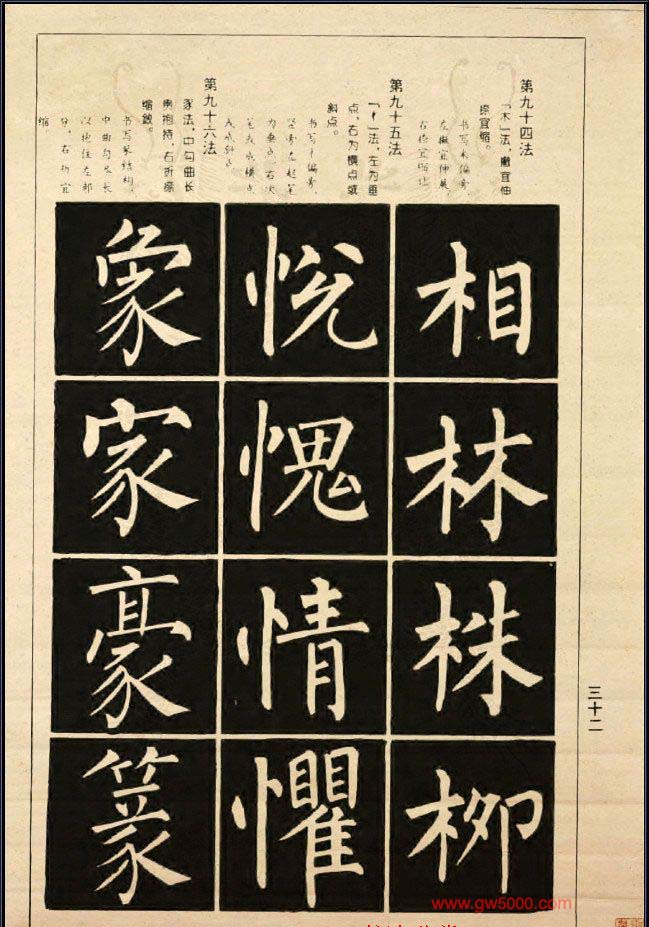 第九十四法
「木」法，撇宜伸
捺宜缩。
书写木偏旁，
左撇宜伸展，
右捺宜缩让
相
林
株
柳
第九十五法
「忄」法，左为垂
点，右为横点或
斜点。
书写忄偏旁，
竖旁左起笔
为垂点，右次
笔为或横点
或斜点
悦
愧
情
懼
第九十六法
豕法，中勾曲长
宜抱持，右折捺
缩敛。
书写豕结构，
中曲勾尽长
以抱住左部
分，右折宜
缩
象
家
豪
篆
三十二
www.gw5000.com